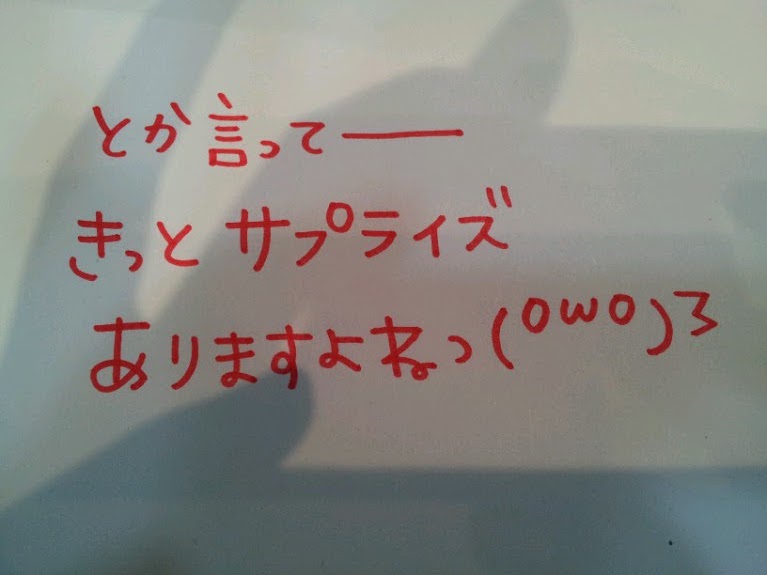 とか言って──
きっとサプライズ
ありますよねっ(OωO)3